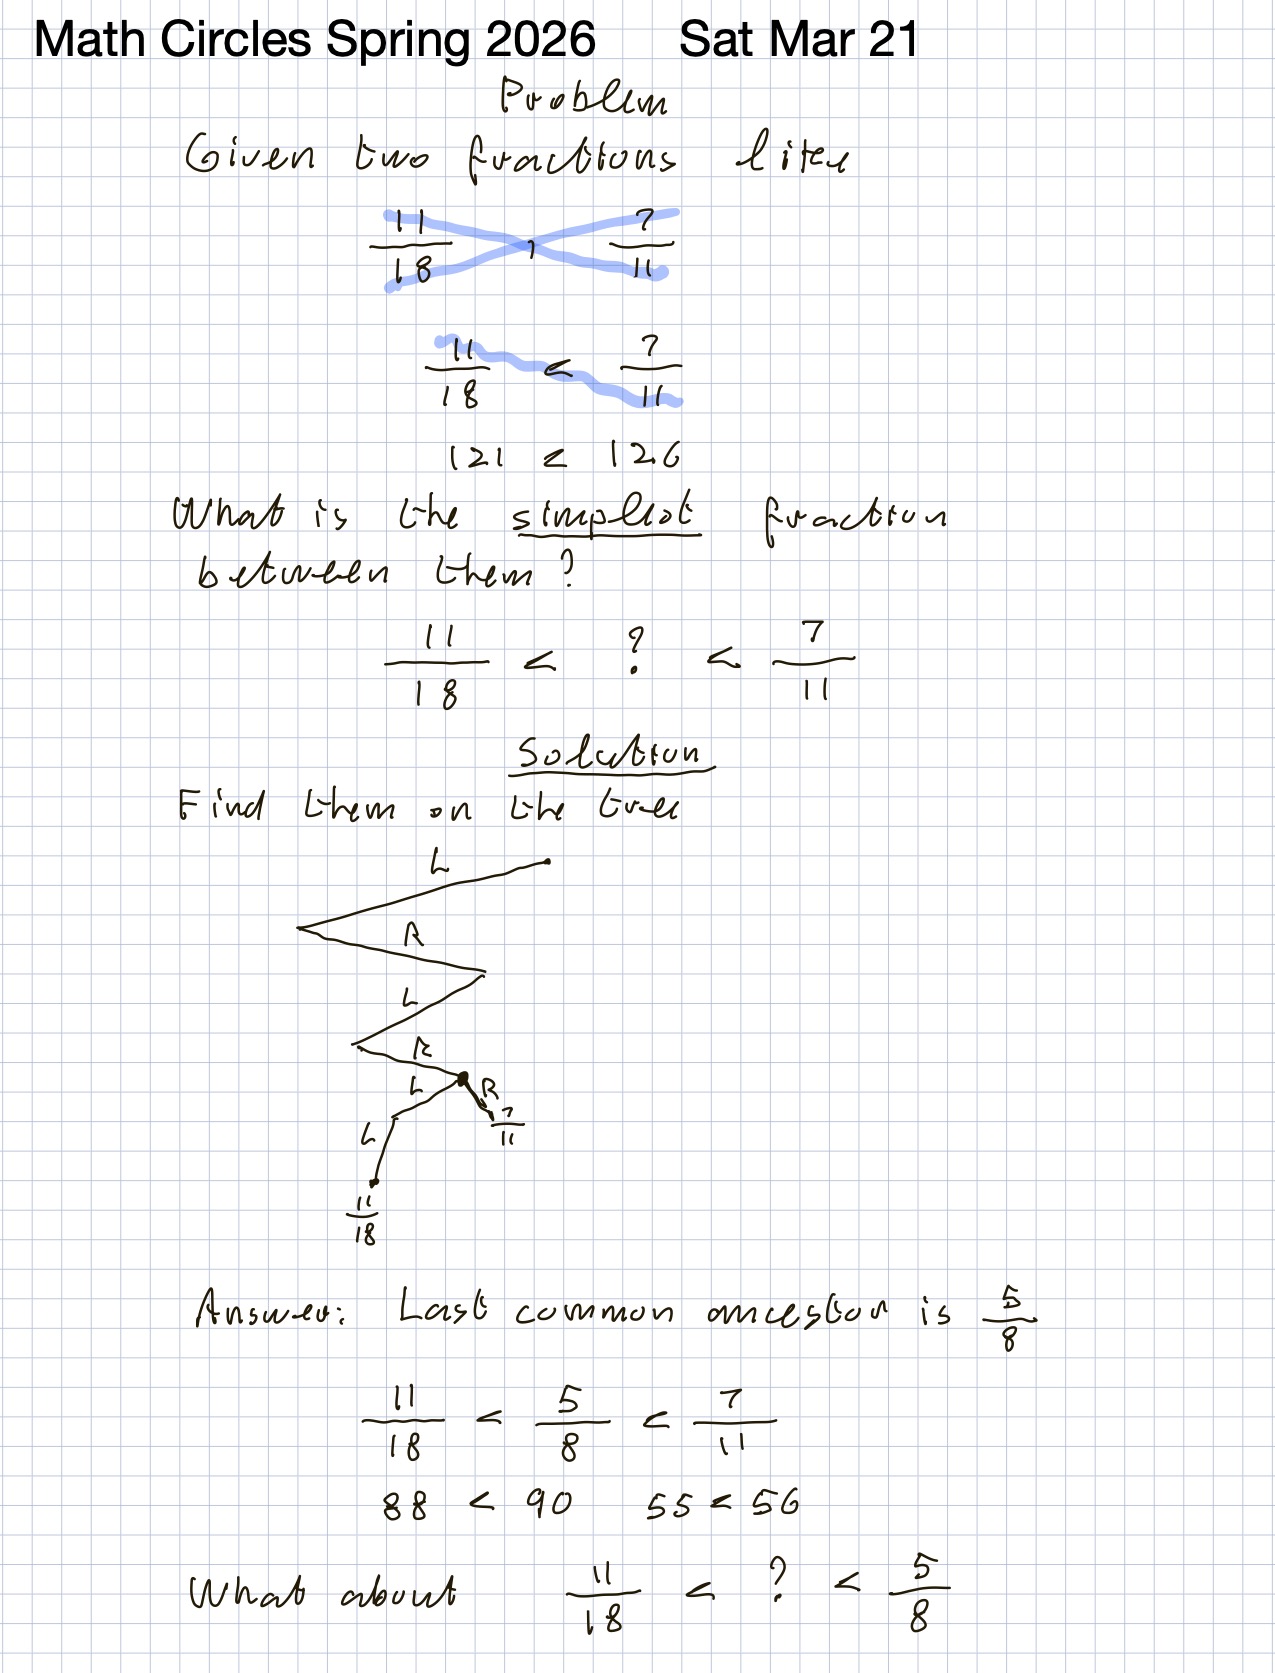 Math Circles Spring 2026 Sat Mar 21
Problem
Given two fractions like
11/18 , 7/11
11/18 < 7/11
121 < 126
What is the simplest fraction
between them?
11/18 < ? < 7/11
Solution
Find them on the tree
L
R
L
R
L R
7/11
L
11/18
Answer: Last common ancestor is 5/8
11/18 < 5/8 < 7/11
88 < 90 55 < 56
What about 11/18 < ? < 5/8